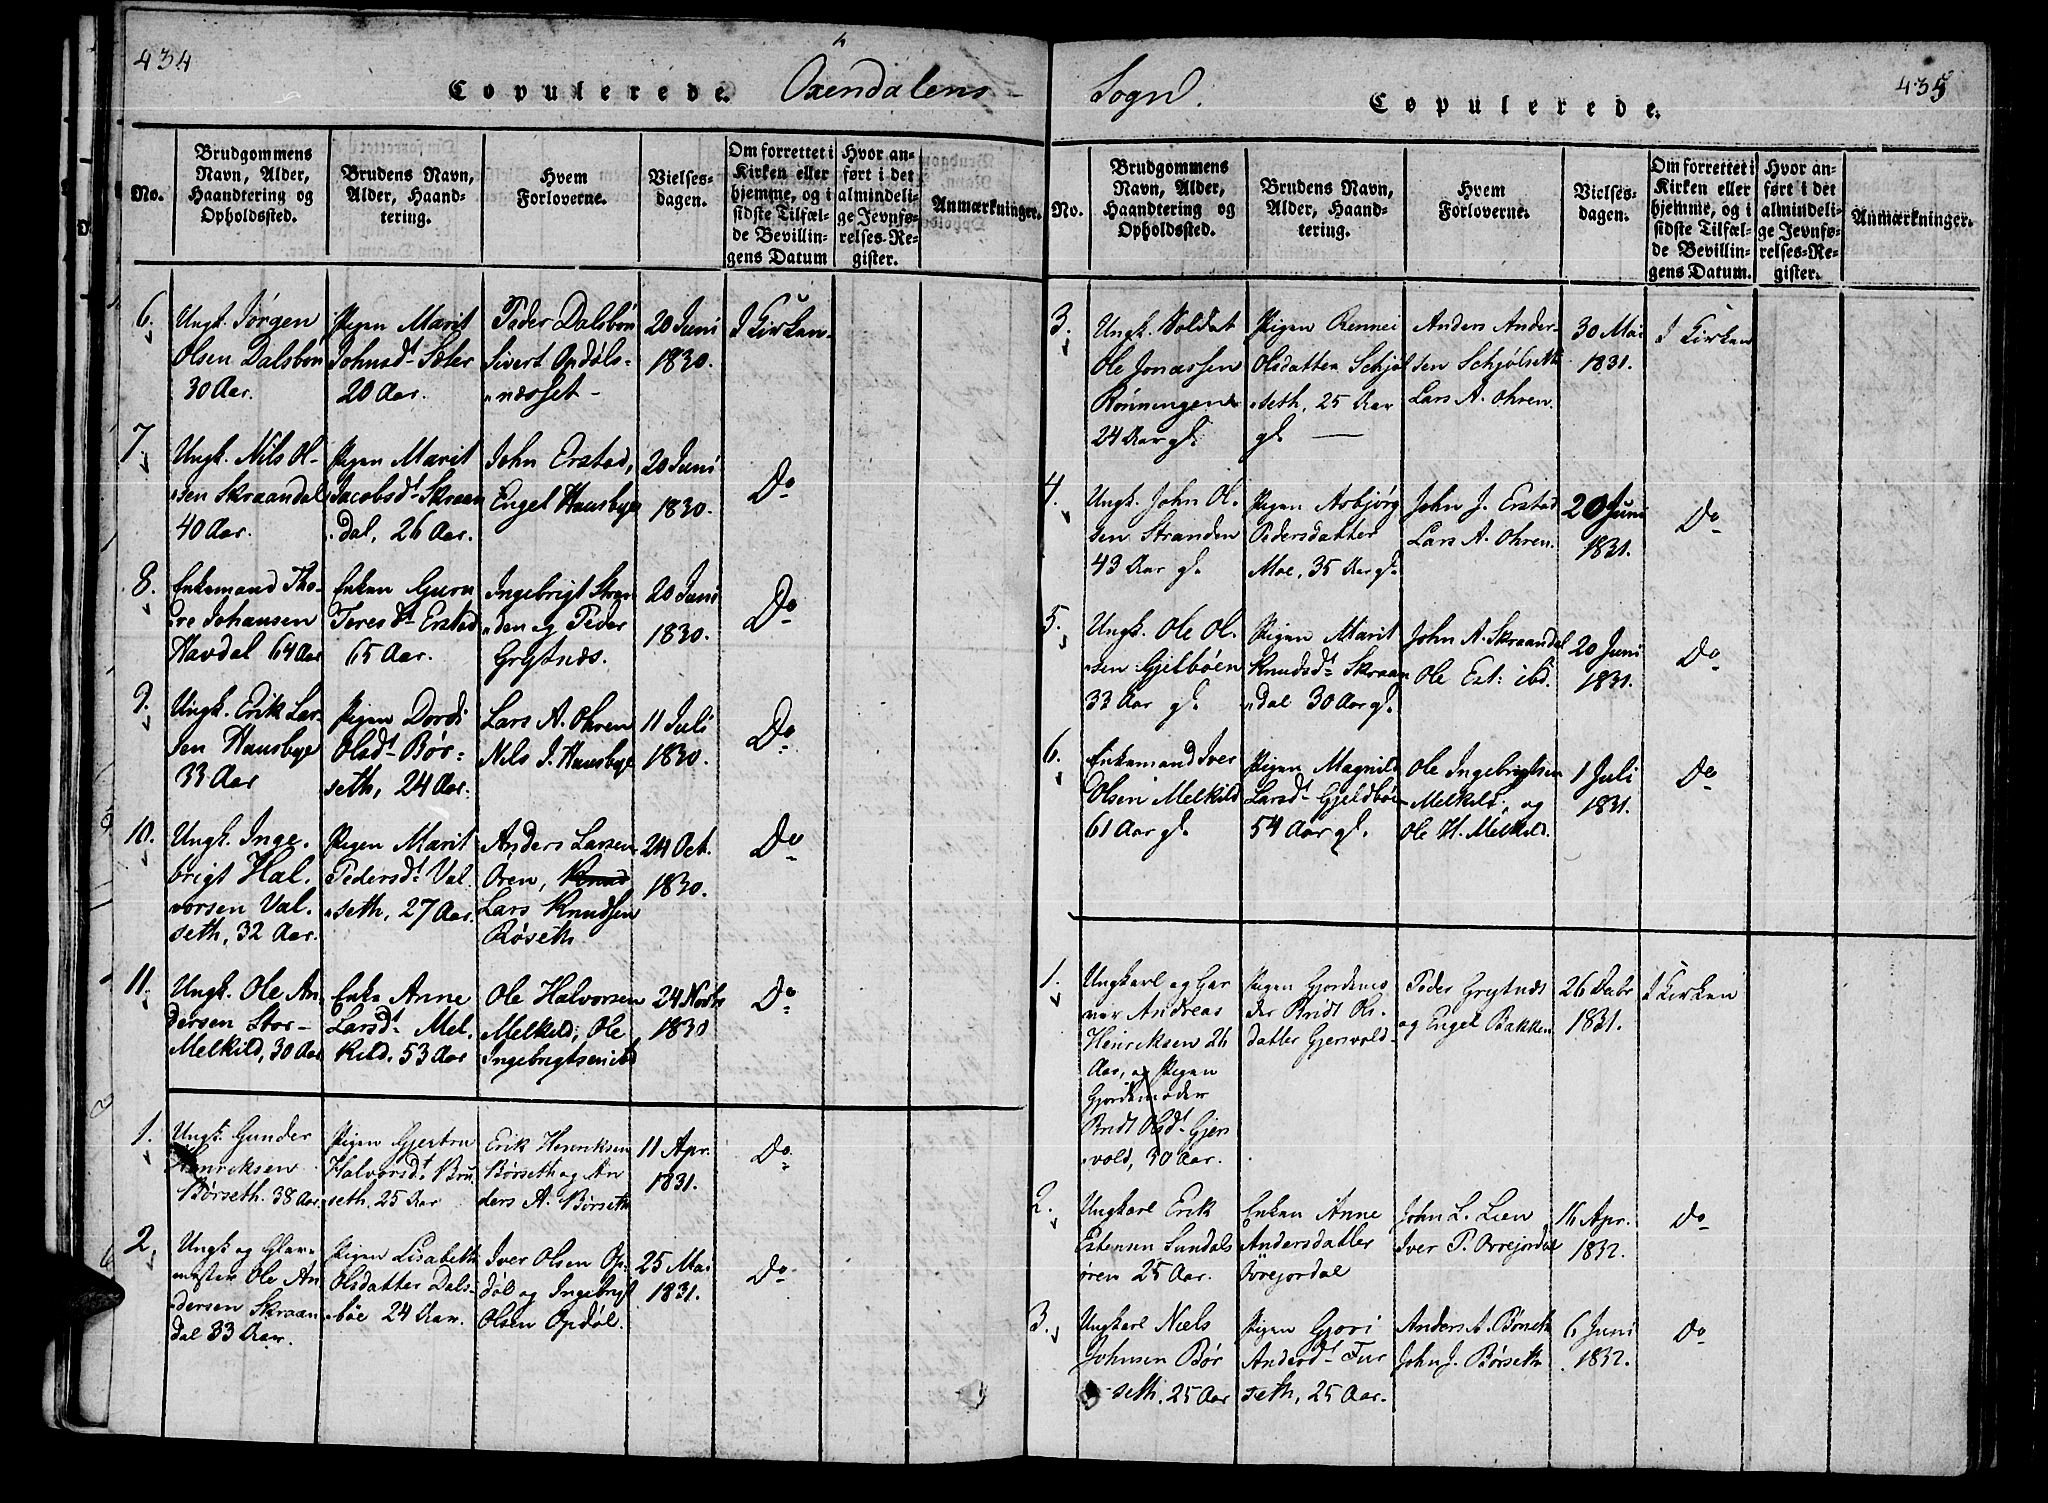 434
Copulerede. Oxendalens
No.
Brudgommens
Navn, Alder,
Haandtering og
Opholdssted.
Brudens Navn,
Alder, Haand-
tering.
Hvem
Forloverne.
Vielses-
dagen.
Om forrettet i
Kirken eller
hjemme, og i
sidste Tilfæl-
de Bevillin-
gens Datum
Hvor an-
ført i det
almindeli-
ge Jevnfø-
relses-Re-
gister.
Anmærkninger.
6.
Ungk. Jørgen
Olsen Dalsbøn
30 Aar.
Pigen Marit
Johnsd. Sæter
20 Aar.
Peder Dalsbøn
Sivert Opdøls-
næsset
20 Juni
1830.
I Kirken
7.
Ungk. Nils Ol-
sen Skraandal
40 Aar.
Pigen Marit
Jacobsdt. Skraan
dal, 26 Aar.
John Erstad,
Engel Hausbye
20 Juni
1830.
Do
8.
Enkemand Tho-
re Johansen
Havdal 64 Aar
Enken Guru
Toresdt. Erstad
65 Aar.
Ingebrigt Stran
den og Peder
Grytnæs.
20 Juni
1830.
Do
9.
Ungk. Erik Lar-
sen Hausbye
33 Aar
Pigen Dordi
Olsdt. Bør-
seth, 24 Aar.
Lars A. Ohren
Nils J. Hausbye
11 Juli
1830.
Do
10.
Ungk. Inge-
brigt Hal-
vorsen Val-
seth, 32 Aar.
Pigen Marit
Pedersdt. Val-
seth, 27 Aar.
Anders Larsen
Oren, Knud
Lars Knudsen
Røseth
24 Oct.
1830.
Do
11.
Ungk. Ole An
dersen Stor-
Melkild, 30 Aar
Enke Anne
Larsdt. Mel-
kild. 53 Aar
Ole Halvorsen
Melkild, Ole
Ingebrigtsen ibd
24 Novbr
1830
Do
1.
Ungk. Gunder
Henriksen
Børseth. 38 Aar.
Pigen Gjertru
Halvorsdt. Bru
seth. 25 Aar
Erik Henriksen
Børseth og An
ders A. Børseth
11 Apr.
1831.
Do
2.
Ungk. og Glar-
mester Ole An
dersen Skraan
dal 33 Aar.
Pigen Lisabeth
Olsdatter Dals-
bøe 24 Aar.
Iver Olsen Op-
døl og Ingebrigt
Olsen Opdøl.
25 Mai
1831.
Do
Sogn. Copulerede.
435
No.
Brudgommens
Navn, Alder,
Haandtering og
Opholdssted.
Brudens Navn,
Alder, Haand-
tering.
Hvem
Forloverne.
Vielses-
dagen.
Om forrettet i
Kirken eller
hjemme, og i
sidste Tilfæl-
de Bevillin-
gens Datum.
Hvor an-
ført i det
almindeli-
ge Jevnfø-
relses-Re-
gister.
Anmærkninger.
3.
Ungk. Soldat
Ole Jonassen
Rønningen
24 Aar gl.
Pigen Rennei
Olsdatter Schjøl
seth, 25 Aar
gl.
Anders Ander-
sen Schjølseth
Lars A. Ohren.
30 Mai
1831.
I Kirken
4.
Ungk. John Ol-
sen Stranden
43 Aar gl.
Pigen Asbjørg
Pedersdatter
Moe, 35 Aar gl.
John J. Erstad
Lars A. Ohren.
20 Juni
1831.
Do
5.
Ungk. Ole Ol-
sen Gjelbøen
33 Aar gl.
Pigen Marit
Knudsdt. Skraan
dal 30 Aar gl.
John A. Skraandal
Ole Est: ibd.
20 Juni
1831.
Do
6.
Enkemand Iver
Olsen Melkild
61 Aar gl.
Pigen Magnild
Larsdt. Gjeldbøe
54 Aar gl.
Ole Ingebrigtsen
Melkild, og
Ole H. Melkild.
1 Juli
1831.
Do
1.
Ungkarl og Gar
ver Andreas
Henriksen 26
Aar, og Pigen
Gjordemoder
Bridt Olsdt. Gjers
vold, 30 Aar.
Pigen Gjordemo
der Bridt Ols-
datter Gjersvold
Peder Grytnæs
og Engel Bakken
26 Decbr
1831.
I Kirken
2.
Ungkarl Erik
Estensen Sundals
øren 25 Aar.
Enken Anne
Andersdatter
Orrejordal
John L. Lien
Iver P. Orrejordal
16 Apr.
1832.
Do
3.
Ungkarl Niels
Johnsen Bør
seth, 25 Aar
Pigen Gjøri
Andersdt. Fur
seth, 25 Aar.
Anders A. Børseth
John J. Børseth
6 Juni
1832.
Do